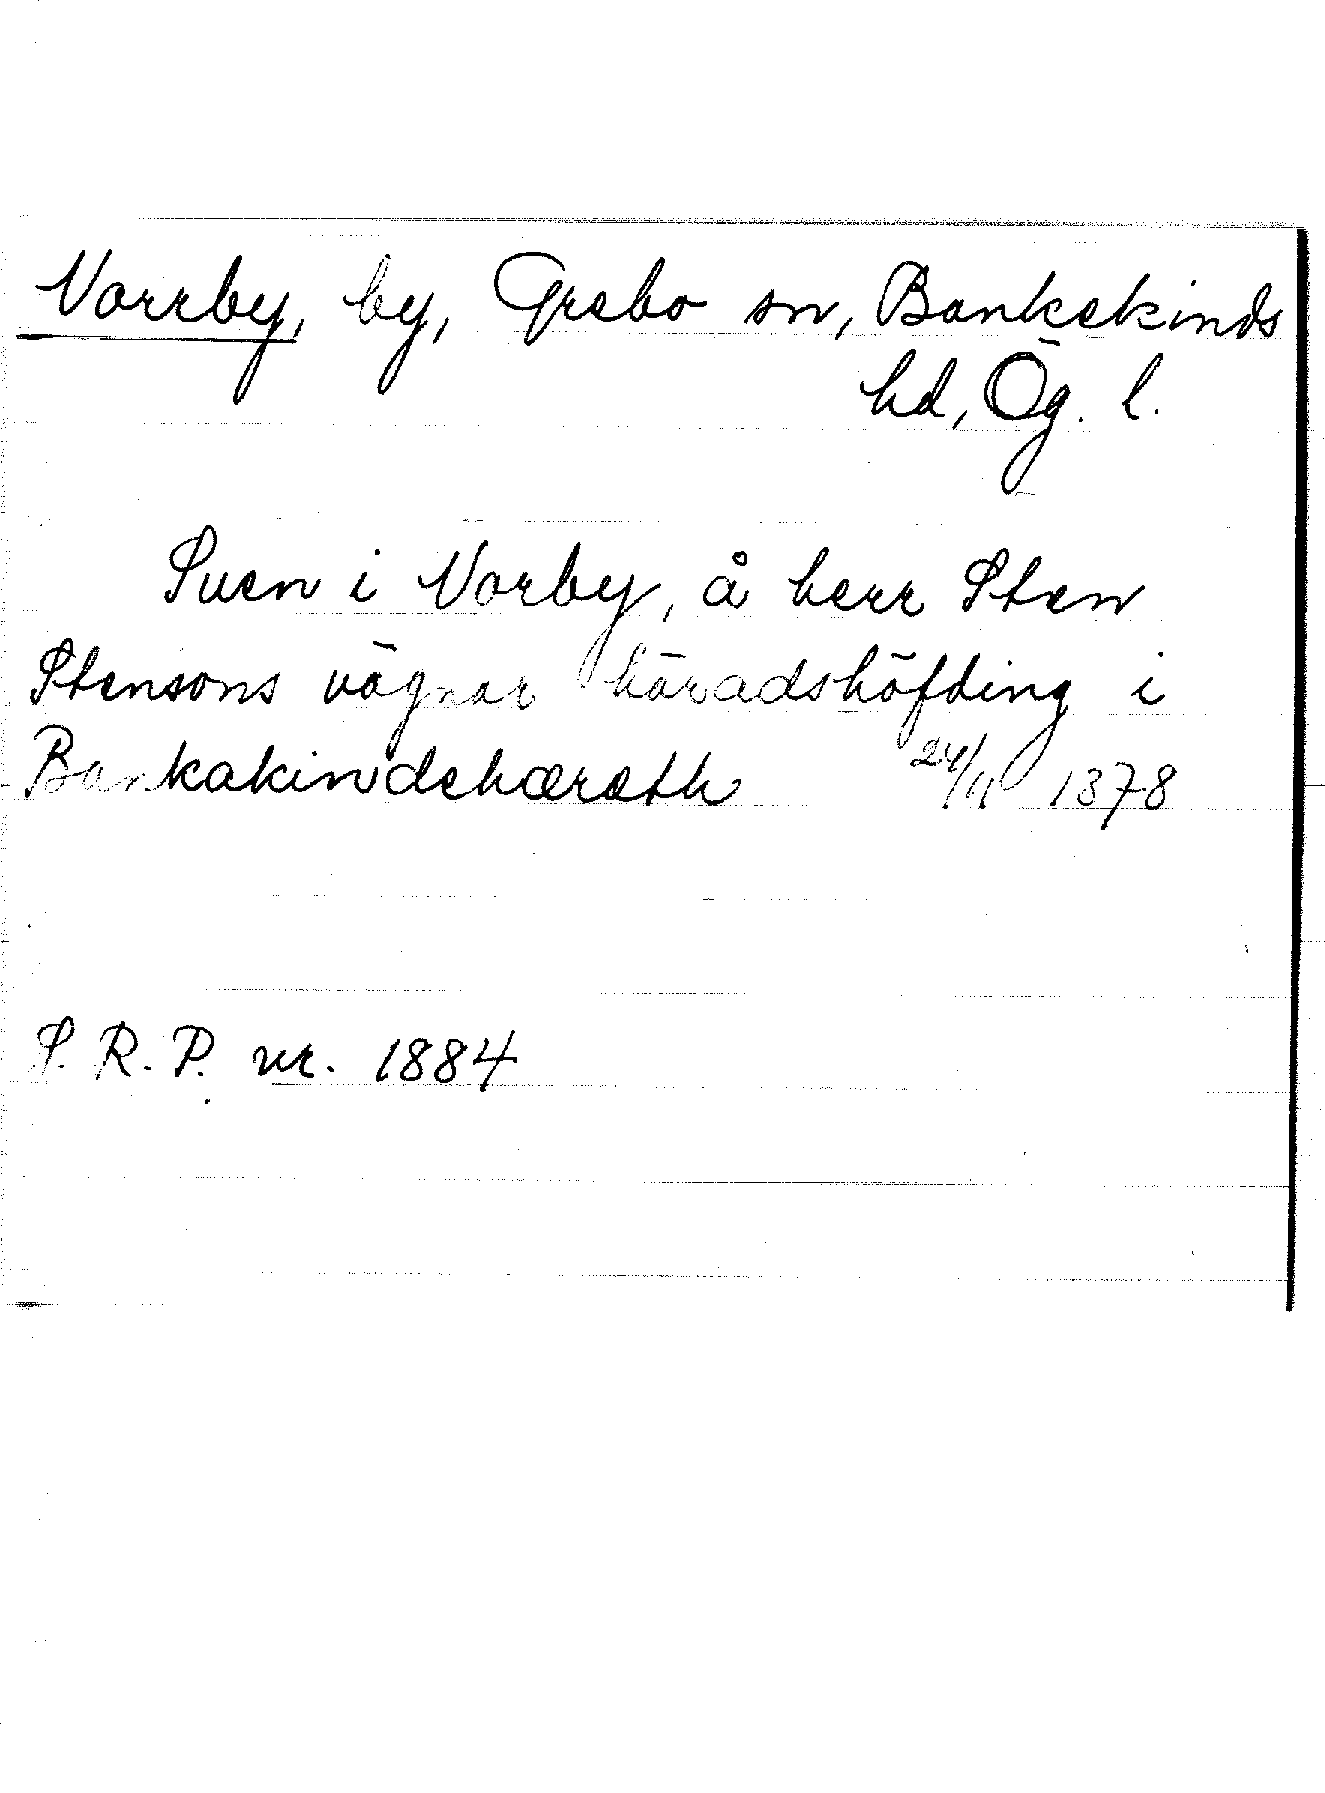 Vorrby, by, Grebo sn, Bankekinds
hd, Ög. l.
Suen i Vorby, å herr Sten
Stensons vägnar häradshöfding i
Bankakindehæreth 24/11 1378
S. R. P. nr. 1884